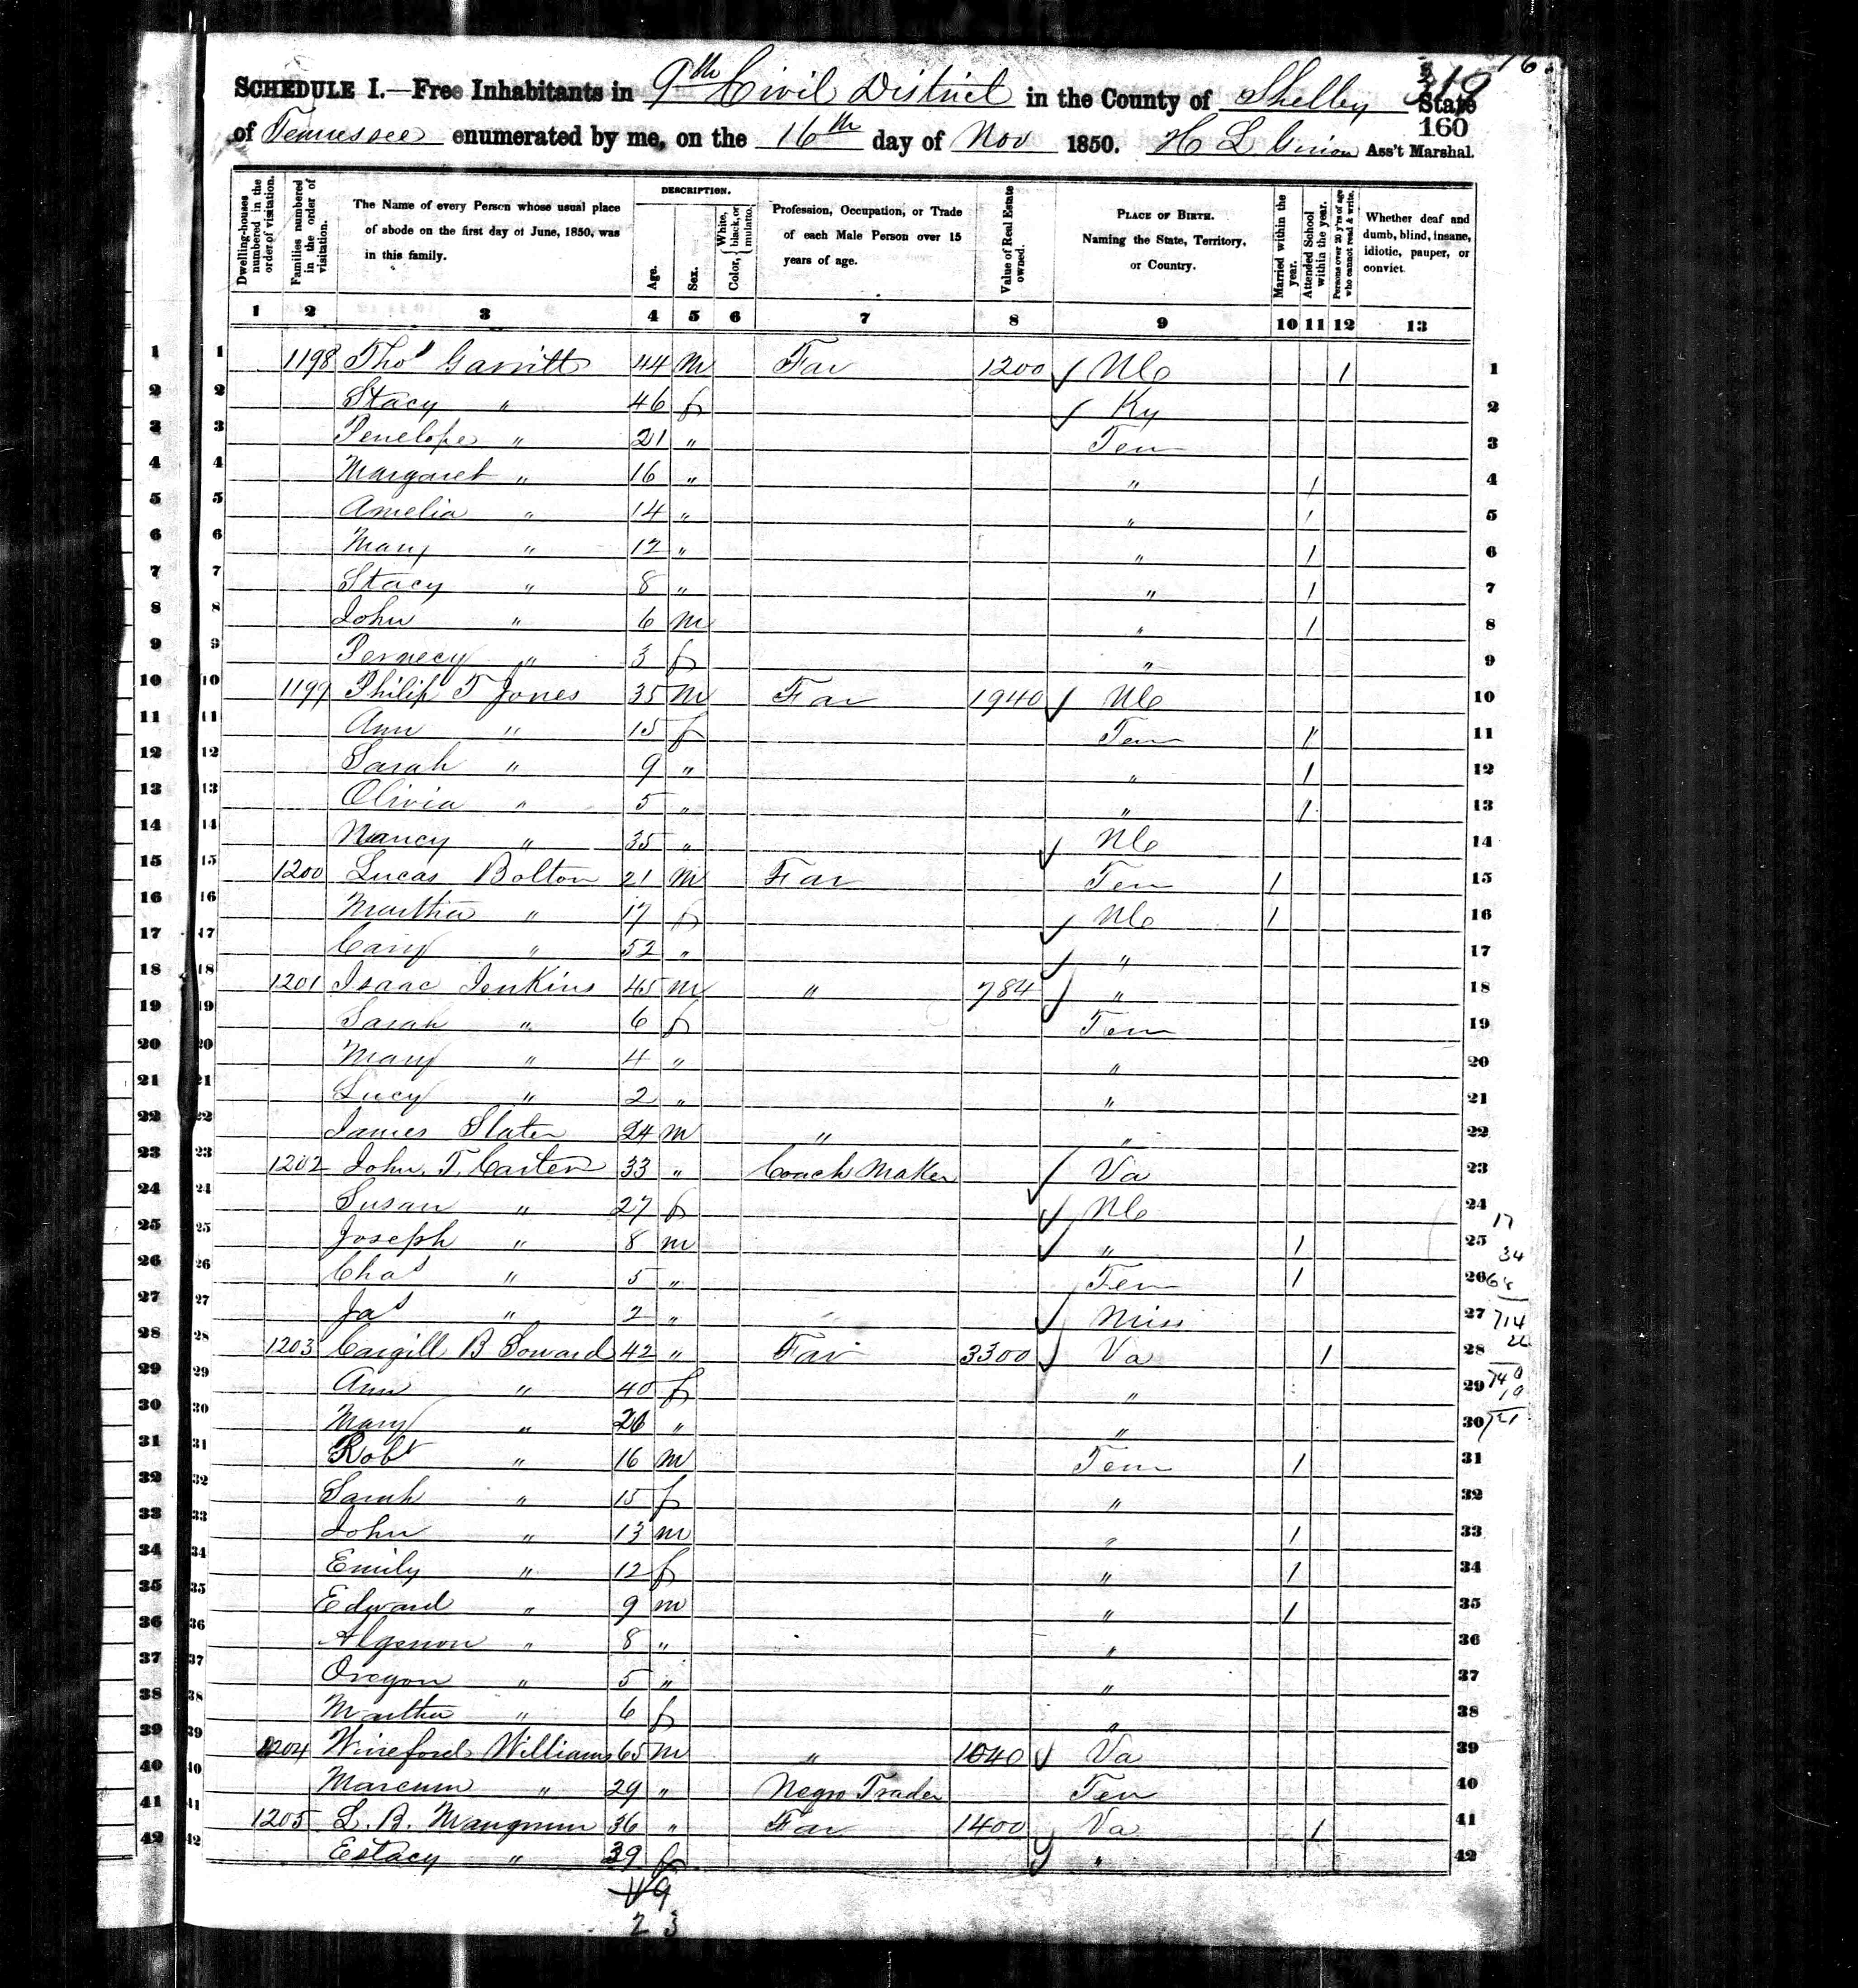 319
SCHEDULE I.—Free Inhabitants in 9th Civil District in the County of Shelby State
of Tennessee enumerated by me, on the 16th day of Nov 1850. H L Ass't Marshal.
160
Dwelling-houses numbered in the order of visitation.
Families numbered in the order of visitation.
The Name of every Person whose usual place of abode on the first day of June, 1850, was in this family.
DESCRIPTION.
Age.
Sex.
Color, { White, black, or mulatto.
Profession, Occupation, or Trade of each Male Person over 15 years of age.
Value of Real Estate owned.
PLACE OF BIRTH. Naming the State, Territory, or Country.
Married within the year.
Attended School within the year.
Persons over 20 y'rs of age who cannot read & write.
Whether deaf and dumb, blind, insane, idiotic, pauper, or convict.
1 2 3 4 5 6 7 8 9 10 11 12 13
1 1 1198 Thos Garritt 44 m Far 1200 ✓ NC 1 1
2 2 Stacy " 46 f ✓ Ky 2
3 3 Penelope " 21 " Ten 3
4 4 Margaret " 16 " " 1 4
5 5 Amelia " 14 " " 1 5
6 6 Mary " 12 " " 1 6
7 7 Stacy " 8 " " 1 7
8 8 John " 6 m " 1 8
9 9 Pernecy " 3 f " 9
10 10 1199 Philip T Jones 35 m Far 1940 ✓ NC 10
11 11 Ann " 15 f Ten 1 11
12 12 Sarah " 9 " " 1 12
13 13 Olivia " 5 " " 1 13
14 14 Nancy " 35 " ✓ NC 14
15 15 1200 Lucas Bolton 21 m Far Ten 1 15
16 16 Martha " 17 f ✓ NC 1 16
17 17 Cary " 52 " ✓ " 17
18 18 1201 Isaac Jenkins 45 m " 784 ✓ " 18
19 19 Sarah " 6 f Ten 19
20 20 Mary " 4 " " 20
21 21 Lucy " 2 " " 21
22 22 James Slater 24 m " " 22
23 23 1202 John T. Carter 33 " Coach Maker ✓ Va 23
24 24 Susan " 27 f ✓ NC 24
25 25 Joseph " 8 m ✓ " 1 25
26 26 Chas " 5 " Ten 1 26
27 27 Jas " 2 " ✓ Miss 27
28 28 1203 Cargill B Soward 42 " Far 3300 ✓ Va 1 28
29 29 Ann " 40 f " 29
30 30 Mary " 20 " " 30
31 31 Robt " 16 m Ten 1 31
32 32 Sarah " 15 f " 32
33 33 John " 13 m " 1 33
34 34 Emily " 12 f " 1 34
35 35 Edward " 9 m " 1 35
36 36 Algernon " 8 " " 36
37 37 Oregon " 5 " " 37
38 38 Martha " 6 f " 38
39 39 1204 Wineford Williams 65 m " 1040 ✓ Va 39
40 40 Marcum " 29 " Negro Trader Ten 40
41 41 1205 L. B. Mangrum 36 " Far 1400 Va 1 41
42 42 Estacy " 39 f " 42
17
34
714
19
2 3